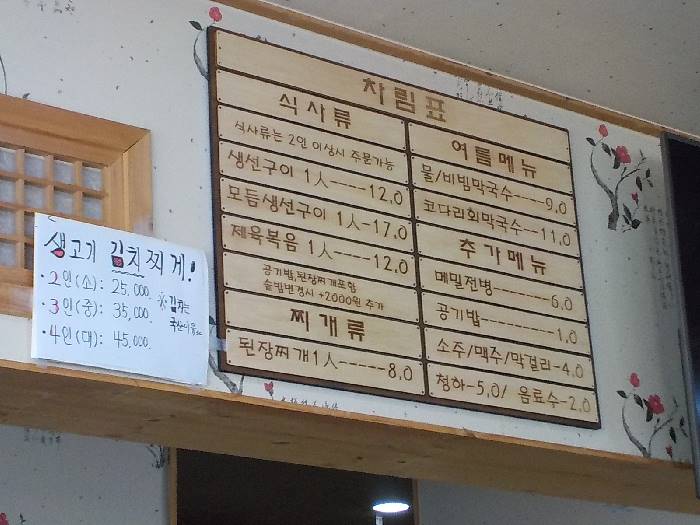 차림표
식사류
식사류는 2인 이상시 주문가능
생선구이 1人-----12,0
모듬생선구이 1人-17,0
제육볶음 1人------12,0
공기밥,된장찌개포함
솥밥변경시 +2000원 추가
찌개류
된장찌개1人------8,0
여름메뉴
물/비빔막국수---9,0
코다리회막국수--11,0
추가메뉴
메밀전병-------6,0
공기밥---------1,0
소주/맥주/막걸리-4,0
청하-5,0/ 음료수-2,0
생고기 김치찌개!
·2인(소): 25,000.
·3인(중): 35,000.
·4인(대): 45,000.
※김치는